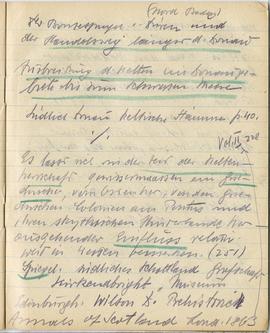 (Nord
der Bronzespangen u. Fibeln und
der Handelsweg längs d. Donau
Ausbreitung d. Kelten im Donauge-
biete bis zum Schwarzen Meere
Südlich Donau Keltische Stämme p. 40.
%
Es lässt sich in der Zeit der Kelten-
herrschaft gewissermassen ein grie-
chischer, vom Osten her, von den grie-
chischen Colonien am Pontus und
ihrem skythischen Hinterlande her
ausgehender Einfluss relativ
weit im Westen bemerken. (251)
Spiegel südliches Schottland Grafschaft
Kirkcudbright, Museum
Edinburgh. Wilson D. Prehistoric
Annals of Scotland Lond. 1863